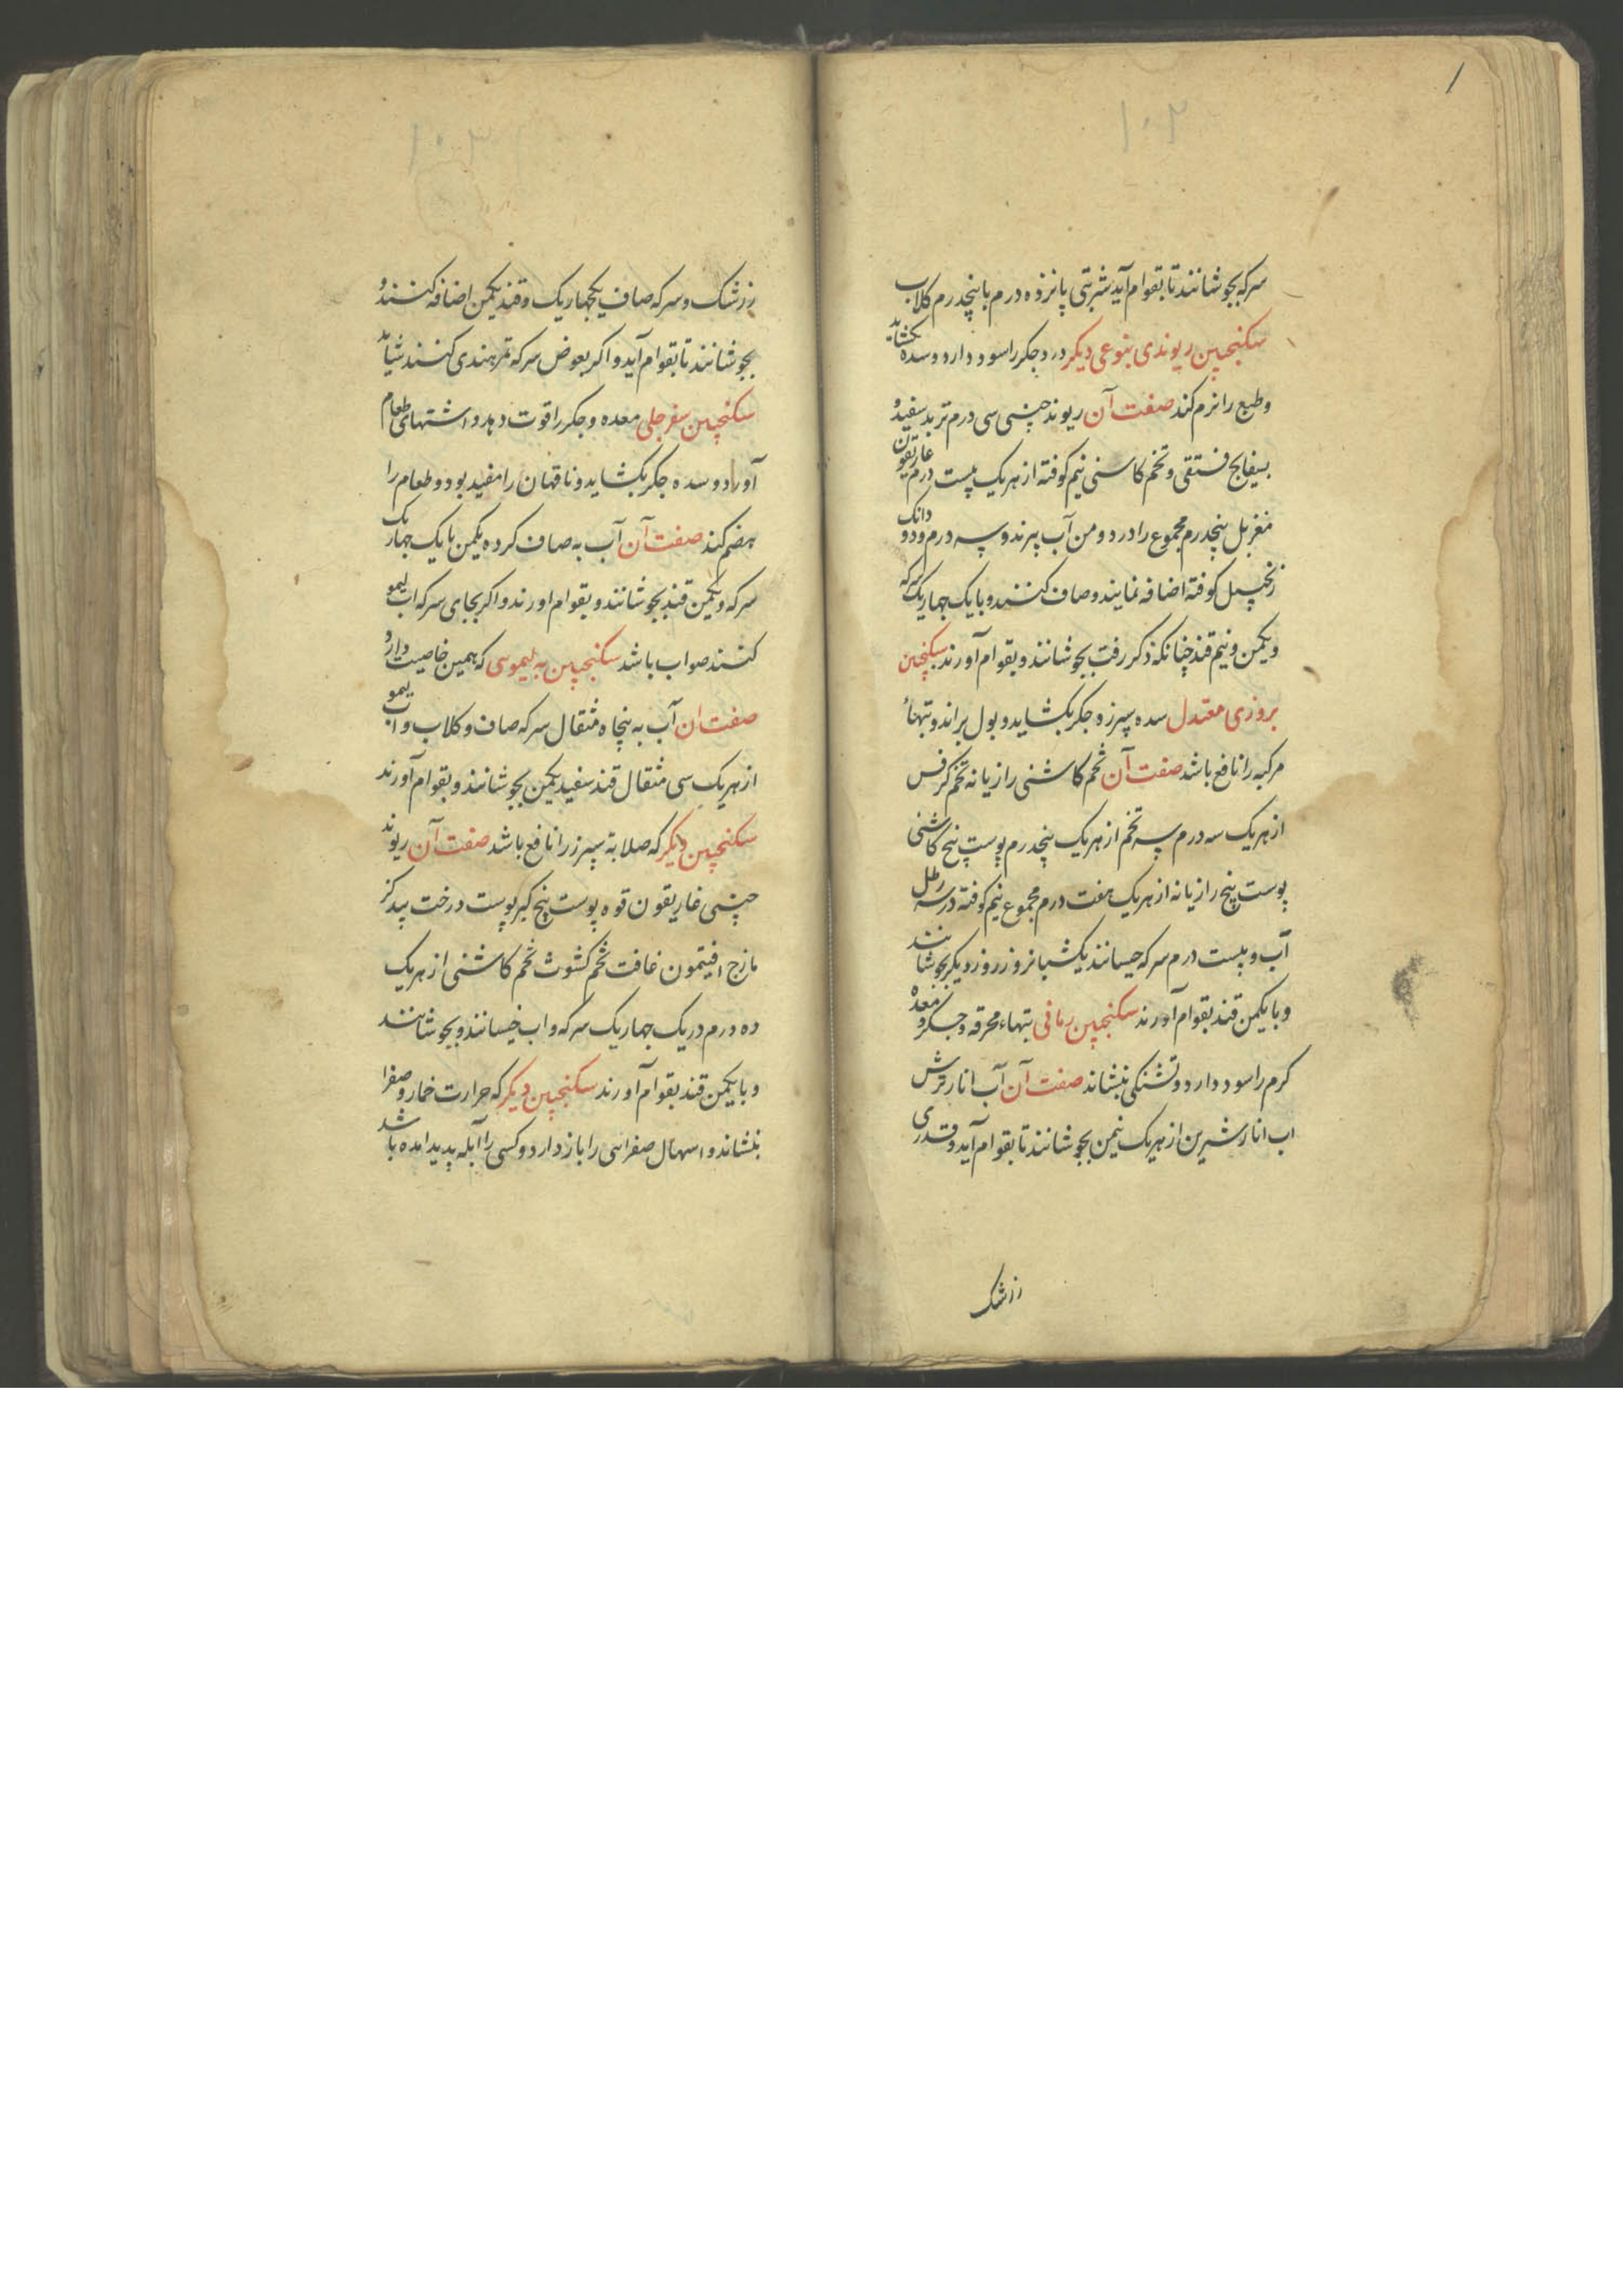 ۱۰۲
سرکه بجوشانند تا بقوام آید شربتی پانزده درم با پنجدرم کلاب
سکنجبین ریوندی بنوعی دیکر درد جکر را سود دارد و سده بکشاید
و طبع را نرم کند صفت آن ریوند چینی سی درم تربد سفید و
بسفایج فستقی و تخم کاسنی نیم کوفته از هر یک بیست درم غاریقون
مغربل پنجدرم مجموع را در دو من آب پزند و سه درم و دو دانک
زنجبیل کوفته اضافه نمایند و صاف کنند و با یک چهاریک سرکه
و یکمن و نیم قند چنانکه ذکر رفت بجوشانند و بقوام آورند سکنجبین
بزوری معتدل سده سپرز و جکر بکشاید و بول براند و تبهاء
مرکبه را نافع باشد صفت آن تخم کاشنی رازیانه تخم کرفس
از هر یک سه درم سه تخم از هر یک پنجدرم پوست بیخ کاشنی
پوست بیخ رازیانه از هر یک هفت درم مجموع نیم کوفته در سه رطل
آب و بیست درم سرکه خیسانند یکشبانروز روز دیکر بجوشانند
و با یکمن قند بقوام آورند سکنجبین رمانی تبهاء محرقه و جکر و معده
کرم را سود دارد و تشنکی بنشاند صفت آن آب انار ترش
اب انار شیرین از هر یک نیمن بجوشانند تا بقوام آید و قدری
زرشک
۱۰۳
زرشک و سرکه صاف یکچهاریک و قند یکمن اضافه کنند و
بجوشانند تا بقوام آید و اکر بعوض سرکه تمر هندی کنند شاید
سکنجبین سفرجلی معده و جکر را قوت دهد و اشتهای طعام
آورد و سده جکر بکشاید و ناقهان را مفید بود و طعام را
هضم کند صفت آن آب به صاف کرده یکمن با یک چهاریک
سرکه و یکمن قند بجوشانند و بقوام اورند و اکر بجای سرکه اب لیمو
کنند صواب باشد سکنجبین به لیموسی که همین خاصیت دارد
صفت ان آب به پنجاه مثقال سرکه صاف و کلاب و اب لیمو
از هر یک سی مثقال قند سفید یکمن بجوشانند و بقوام آورند
سکنجبین دیکر که صلابة سپرز را نافع باشد صفت آن ریوند
چینی غاریقون قوه پوست بیخ کبر پوست درخت بید کز
مازج افیتمون غافت تخم کشوث تخم کاشنی از هر یک
ده درم در یک چهاریک سرکه و اب خیسانند و بجوشانند
و با یکمن قند بقوام آورند سکنجبین دیکر که حرارت خمار و صفرا
بنشاند و اسهال صفراسی را باز دارد و کسی را آبله پدید امده باشد